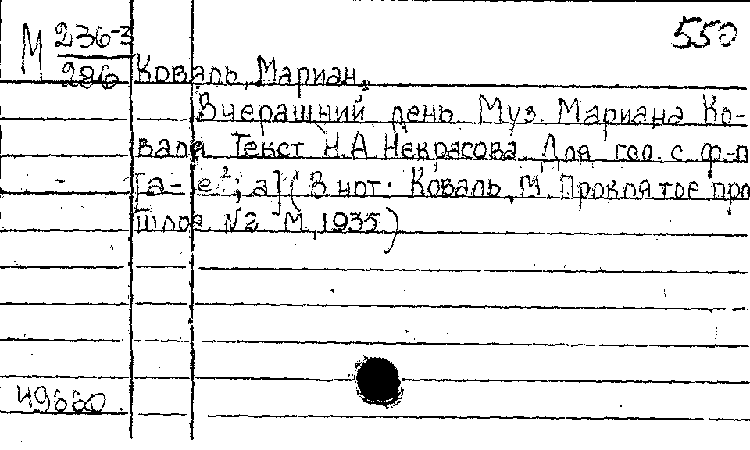 М 236-3 550
286 Коваль, Мариан.
Вчерашний день. Муз. Мариана Ко-
валя. Текст Н.А. Некрасова. Для гол. с ф-п
[а-е²; а] (В нот: Коваль, М. Проклятое про
шлое №2 М., 1935)